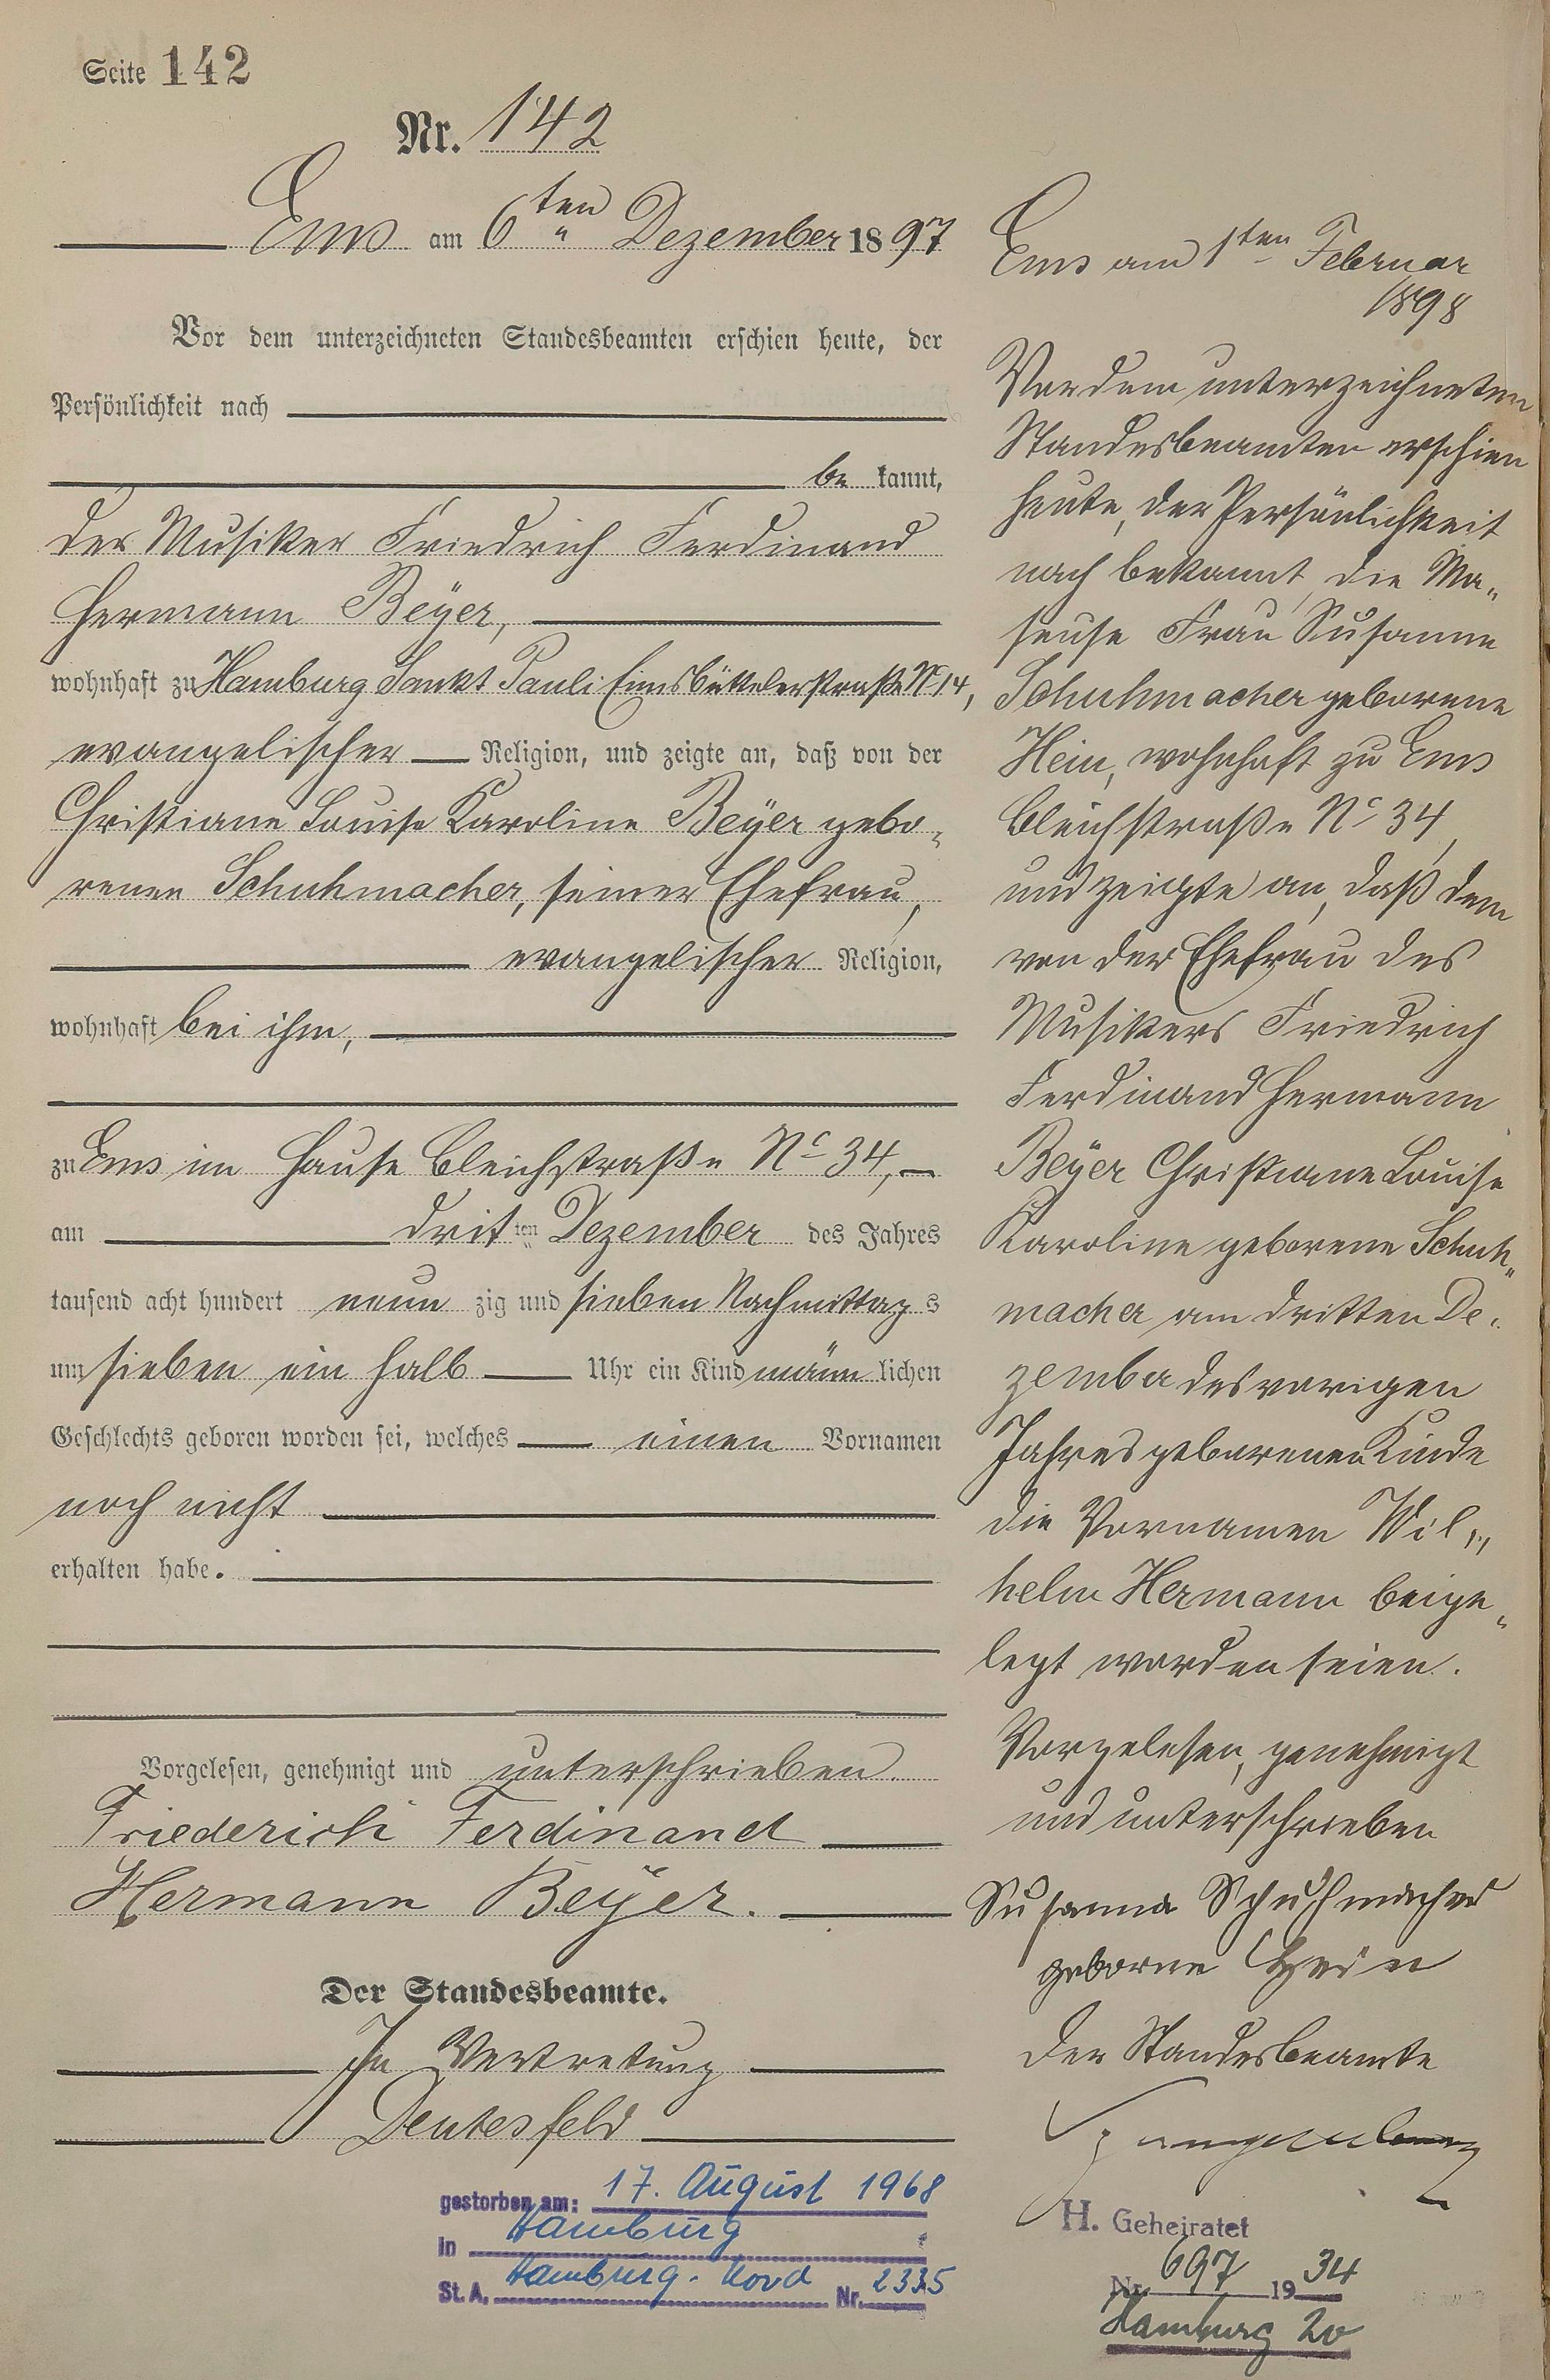 Seite 142
Nr. 142
Ems am 6ten Dezember 1897
Vor dem unterzeichneten Standesbeamten erschien heute, der
Persönlichkeit nach
be kannt,
der Musiker Friedrich Ferdinand
Hermann Beÿer,
wohnhaft zu Hamburg Sankt Pauli Eimsbüttelerstraße No 14,
evangelischer Religion, und zeigte an, daß von der
Christiane Louise Karoline Beÿer gebo-
renen Schuhmacher, seiner Ehefrau,
evangelischer Religion,
wohnhaft bei ihm,
zu Ems im Hause Bleichstraße No 34,
am drit ten Dezember des Jahres
tausend acht hundert neun zig und sieben Nachmittag s
um sieben ein halb Uhr ein Kind männ lichen
Geschlechts geboren worden sei, welches einen Vornamen
noch nicht
erhalten habe.
Vorgelesen, genehmigt und unterschrieben.
Friederich Ferdinand
Hermann Beÿer.
Der Standesbeamte.
In Vertretung
Deutesfeld
gestorben am: 17. August 1968
in Hamburg
St. A. Hamburg-Nord Nr. 2335
Ems am 1ten Februar
1898
Vor dem unterzeichneten
Standesbeamten erschien
heute, der Persönlichkeit
nach bekannt, die Ma-
seuse Frau Susanne
Schuhmacher geborene
Hein, wohnhaft zu Ems
Bleichstraße No 34,
und zeigte an, daß dem
von der Ehefrau des
Musikers Friedrich
Ferdinand Hermann
Beÿer Christiane Louise
Karoline geborene Schuh-
macher am dritten De-
zember des vorigen
Jahres geborenen Kinde
die Vornamen Wil-
helm Hermann beige-
legt worden seien.
Vorgelesen, genehmigt
und unterschrieben
Susanna Schuhmacher
geborne Hein
Der Standesbeamte
Spangenberg
H. Geheiratet
Nr. 697 1934
Hamburg 20